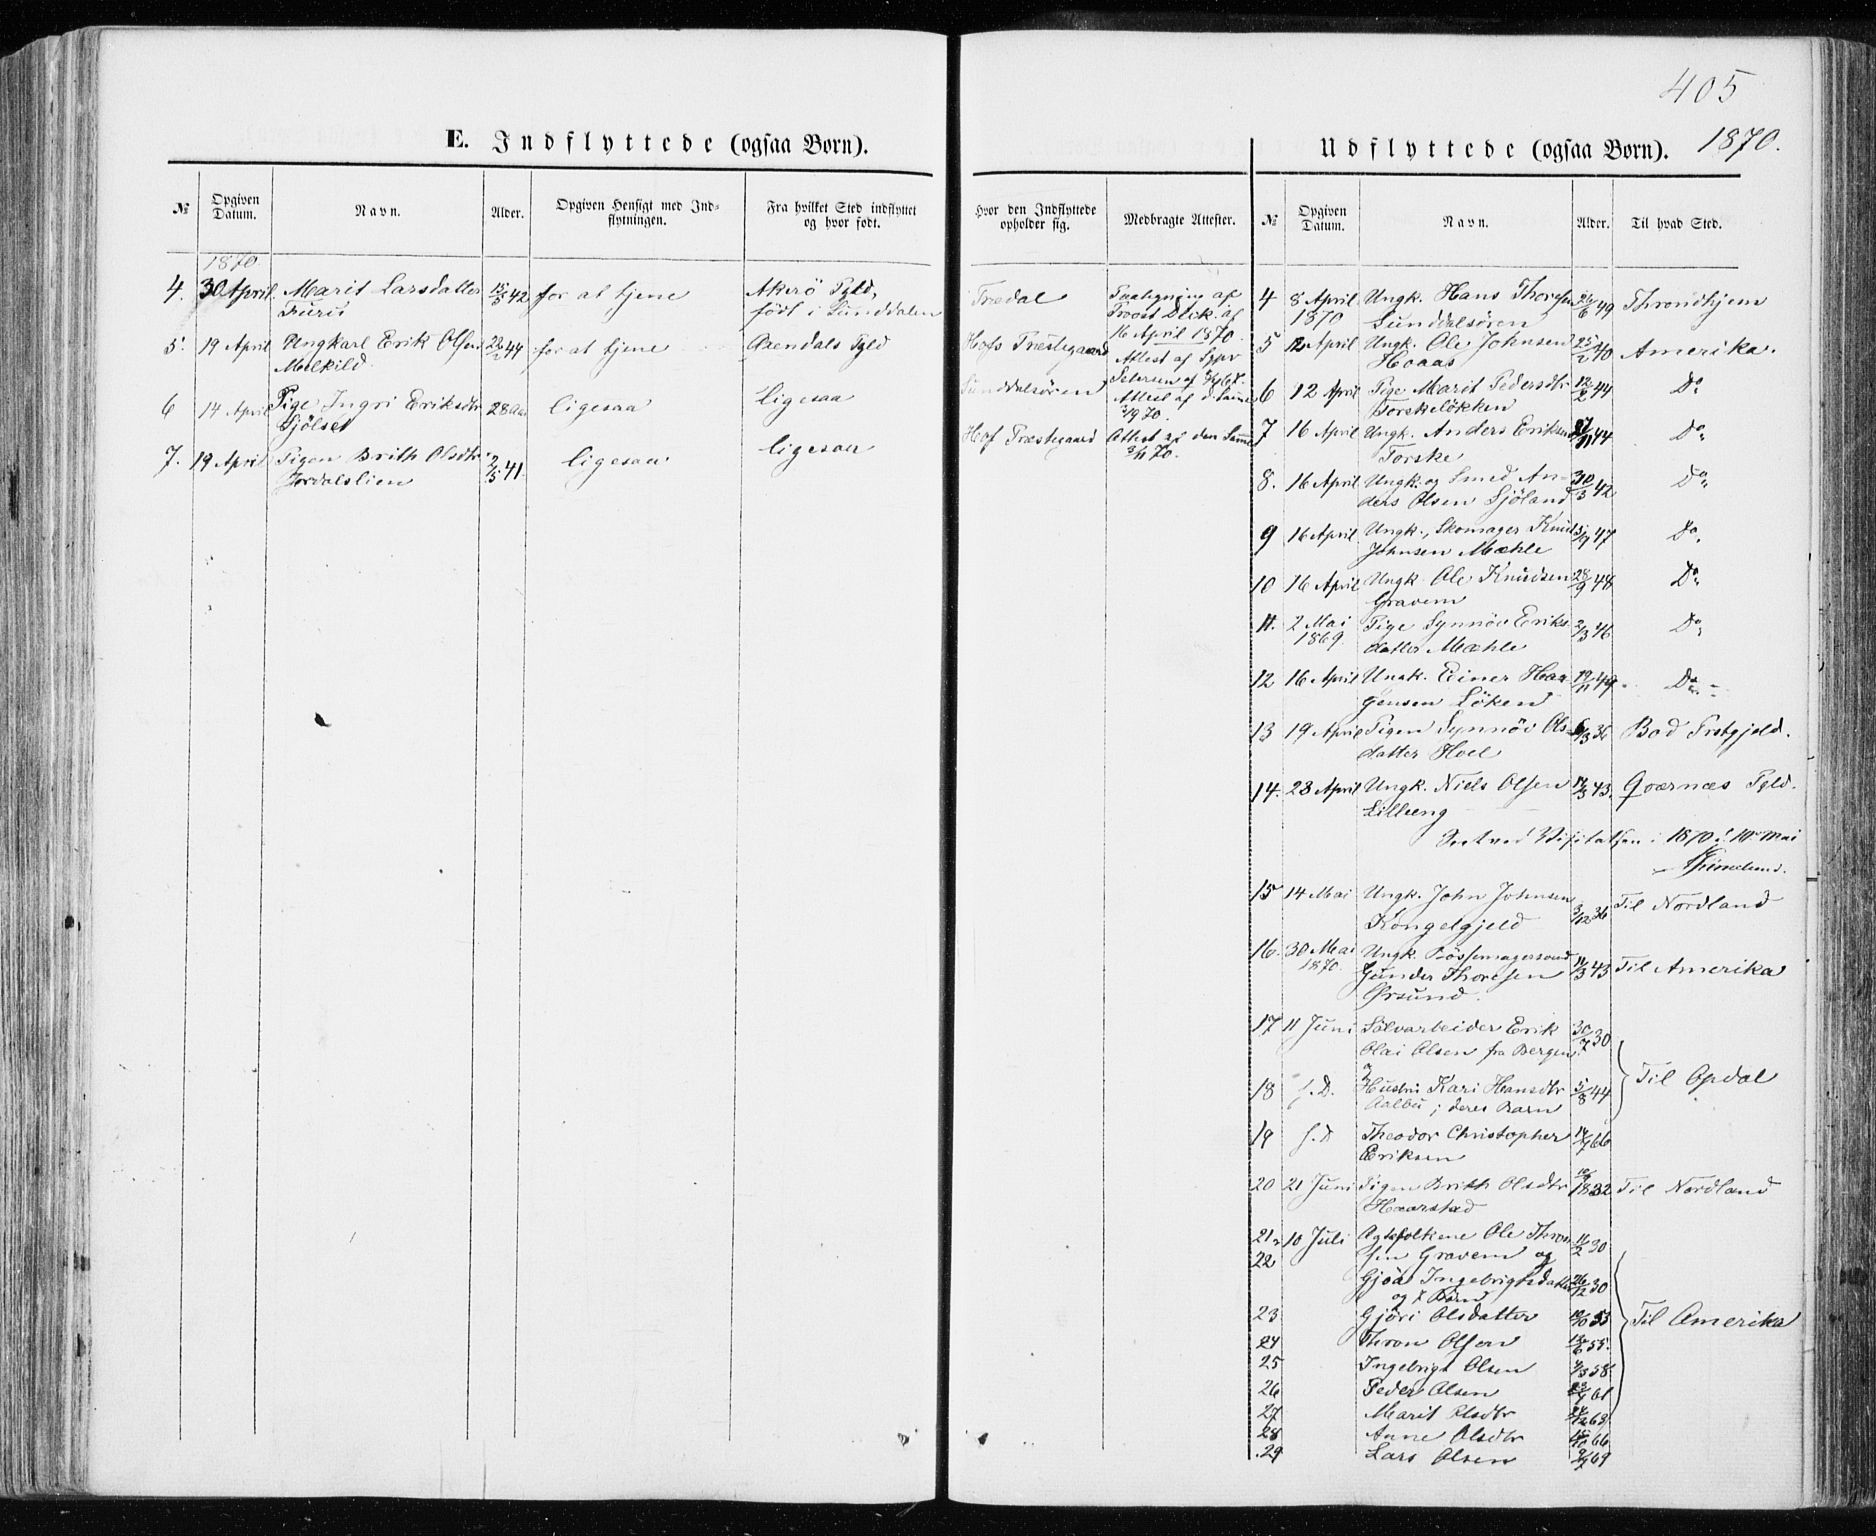 405
1870.
E. Indflyttede (ogsaa Børn).
№
Opgiven Datum.
Navn.
Alder.
Opgiven Hensigt med Indflytningen.
Fra hvilket Sted indflyttet og hvor født.
Hvor den Indflyttede opholder sig.
Medbragte Attester.
1870
4. 30 April. Marit Larsdatter 15/5 42 for at tjene Akerö Pgld, Trædal Paategning af
Furu født i Sunddalen Provst Dick. af
16 April 1870.
5. 19 April Ungkarl Erik Olsen 22/2 44 for at tjene Øxendals Pgld Hofs Præstegaard Attest af Sgpr
Melkild Petersen af
6 14 April Pige Ingri Eriksdtr 28 Aar ligesaa Ligesaa Sunddalsören Attest af d. Samme
Sjölset 70.
7. 19 April Pigen Brith Olsdtr 2/5 41 ligesaa ligesaa Hof Præstegaard Attest af den Samme
Jordalslien 70.
Udflyttede (ogsaa Børn).
№
Opgiven Datum.
Navn.
Alder.
Til hvad Sted.
4 8 April Ungk. Hans Thoresen 26/6 49 Throndhjem
1870 Sunddalsören
5 12 April Ungk. Ole Johnsen 25/2 40 Amerika.
Hoaas
6 12 April Pige Marit Pedersdtr 12/2 44 Do
Torskeløkken
7 16 April Ungk. Anders Eriksen 27/11 44 Do
Torske
8. 16 April Ungk. og Smed An- 30/3 42 Do
ders Olsen Sjöland
9 16 April Ungk., Skomager Knud 5/9 47 Do
Johnsen Mæhle
10 16 April Ungk. Ole Knudsen 28/9 48 Do
Gravem
11. 2 Mai Pige Synnöv Eriks 2/3 46 Do
1869. datter Mæhle
12 16 April Ungk. Einer Haa 19/11 49 Do
gensen Löken
13 19 April Pigen Synnöv Ols 6/3 36 Bod Prstgjeld.
datter Hoel
14. 28 April Ungk. Niels Olsen 17/3 43. Qværnæs Pgld.
Lilleeng
Seet ved Visitatsen i 1870 d. 10 Mai
15 14 Mai Ungk. John Johnsen 3/12 36 Til Nordland
Kongelgjeld
16. 30 Mai Ungk. Bössemagersvend
1870. Gunder Thoresen 11/3 43 Til Amerika
Ørsund.
17 11 Juni Sölvarbeider Erik 30/7 30
Olai Olsen fra Bergen
18 f. D. Hustru Kari Hansdtr 5/8 44 Til Opdal
Aalbu ; deres Barn
19 f. D Theodor Christopher 14/9 66
Eriksen
20 21 Juni Pigen Brith Olsdtr 10/9 1832 Til Nordland
Haarstad
21. 10 Juli Ægtefolkene Ole Thron 11/2 30
22 sen Gravem og
Gjöa Ingebrigtsdatter 26/12 30
og 7 Börn
23 Gjöri Olsdatter 12/10 53 Til Amerika
24 Thron Olsen 13/6 55.
25 Ingebrigt Olsen 4/3 58
26 Peder Olsen 61
27 Marit Olsdtr 63
28 Anne Olsdtr 66
29 Lars Olsen 9/7 69